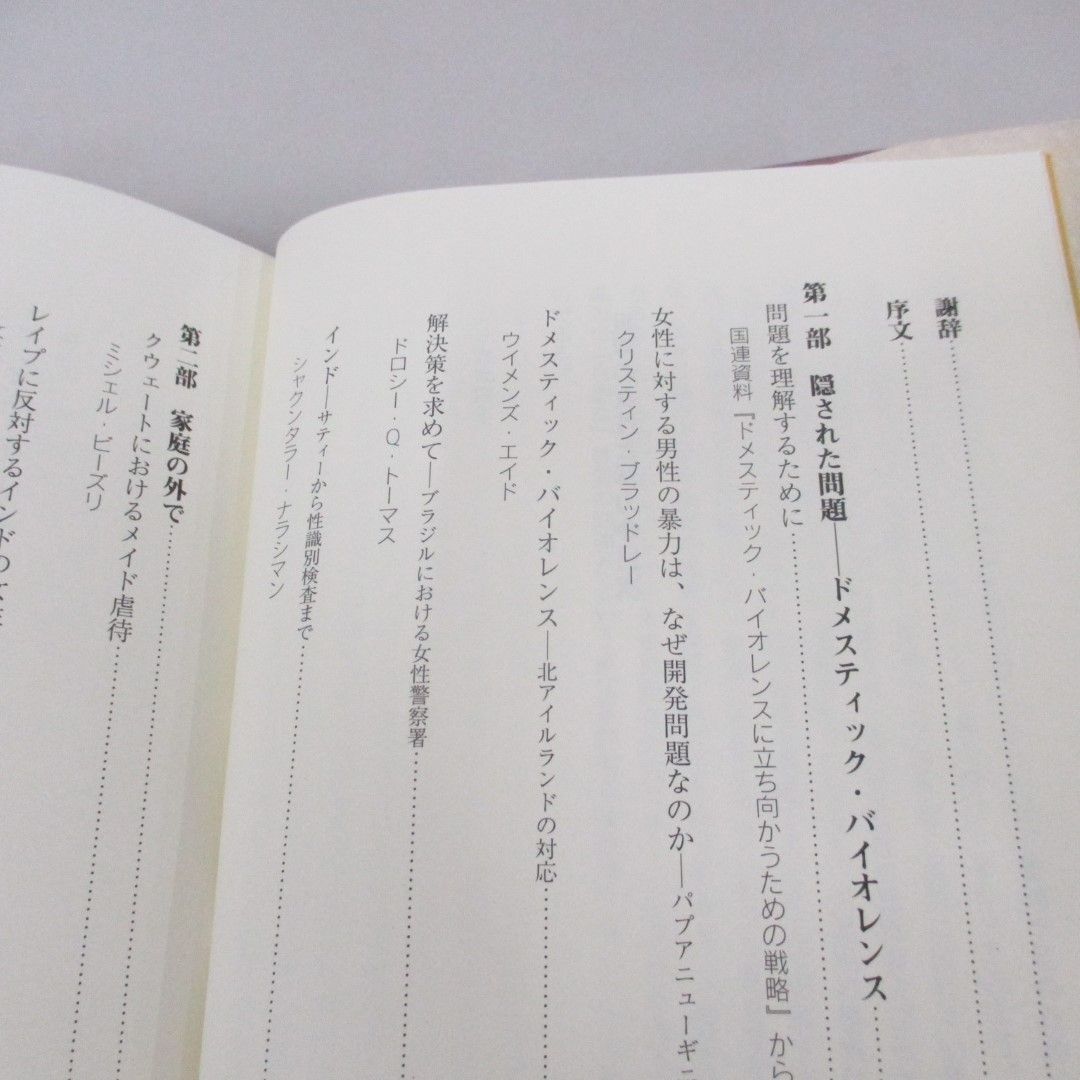 謝辞
序文
第一部　隠された問題――ドメスティック・バイオレンス
問題を理解するために
国連資料『ドメスティック・バイオレンスに立ち向かうための戦略』から
女性に対する男性の暴力は、なぜ開発問題なのか――パプアニューギニ
クリスティン・ブラッドレー
ドメスティック・バイオレンス――北アイルランドの対応
ウイメンズ・エイド
解決策を求めて――ブラジルにおける女性警察署
ドロシー・Q・トーマス
インド――サティーから性識別検査まで
シャクンタラー・ナラシマン
第二部　家庭の外で
クウェートにおけるメイド虐待
ミシェル・ビーズリ
レイプに反対するインドの女性